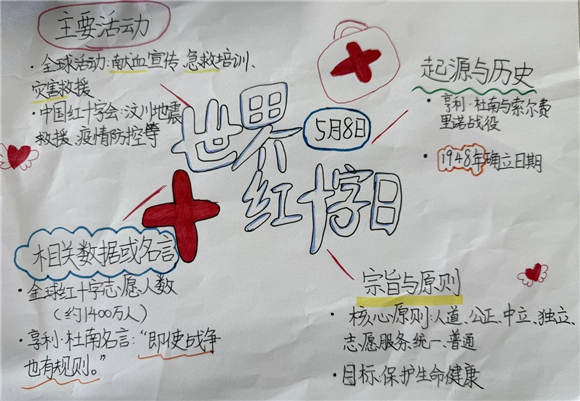 主要活动
• 全球活动:献血宣传、急救培训、
灾害救援
• 中国红十字会:汶川地震
救援、疫情防控等
世界
红十字日
5月8日
起源与历史
• 亨利·杜南与索尔费
里诺战役
• 1948年确立日期
相关数据或名言
• 全球红十字志愿人数
(约1400万人)
• 亨利·杜南名言:“即使战争
也有规则。”
宗旨与原则
• 核心原则:人道、公正、中立、独立、
志愿服务、统一、普通
• 目标:保护生命健康